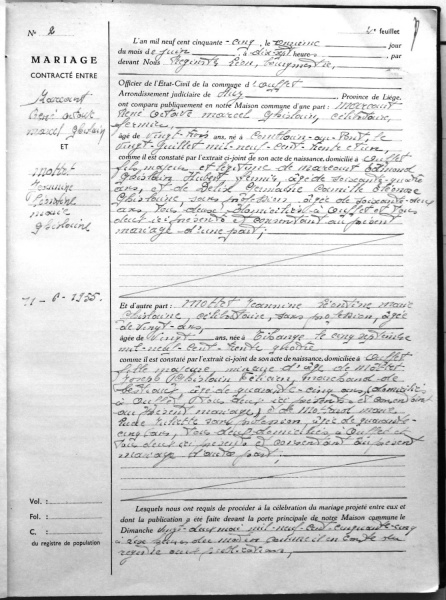 N° 2
2e feuillet
MARIAGE
CONTRACTÉ ENTRE
Marcourt
René Octave
Marcel Ghislain
ET
Mottet
Jeannine
Marie
Ghislaine
11 - 6 - 1955.
L'an mil neuf cent cinquante-cinq, le onzième jour
du mois de juin, à dix-sept heures, par
devant Nous
Officier de l'État-Civil de la commune d'Ouffet
Arrondissement judiciaire de Huy, Province de Liège,
ont comparu publiquement en notre Maison commune d'une part : Marcourt
René Octave Marcel Ghislain, célibataire,
fermier,
âgé de vingt-trois ans, né à Comblain-au-Pont le
vingt juillet mil neuf cent trente et un,
comme il est constaté par l'extrait ci-joint de son acte de naissance, domicilié à Ouffet
fils majeur et légitime de Marcourt Edmond
Ghislain Hubert, fermier, âgé de soixante-quatre
ans, et de Germaine Camille
Ghislaine, sans profession, âgée de cinquante-deux
ans, tous deux domiciliés à Ouffet et tous
deux ici présents et consentant au présent
mariage d'une part ;
Et d'autre part : Mottet Jeannine Marie
Ghislaine, célibataire, sans profession, âgée
de vingt ans,
âgée de vingt ans, née à le cinq septembre
mil neuf cent trente quatre,
comme il est constaté par l'extrait ci-joint de son acte de naissance, domiciliée à Ouffet
fille mineure d'âge de Mottet
Joseph Ghislain, marchand de
bestiaux, âgé de quarante-cinq ans, domicilié
à Ouffet, ici présent et consentant
au présent mariage, et de Marie
Juliette sans profession, âgée de quarante-
cinq ans, tous deux domiciliés à Ouffet et
tous deux ici présents et consentant au présent
mariage d'autre part ;
Lesquels nous ont requis de procéder à la célébration du mariage projeté entre eux et
dont la publication a été faite devant la porte principale de notre Maison commune le
Dimanche mai mil neuf cent cinquante-cinq
à dix heures du matin comme il en conste du
registre aux publications,
Vol. :
Fol. :
C. :
du registre de population